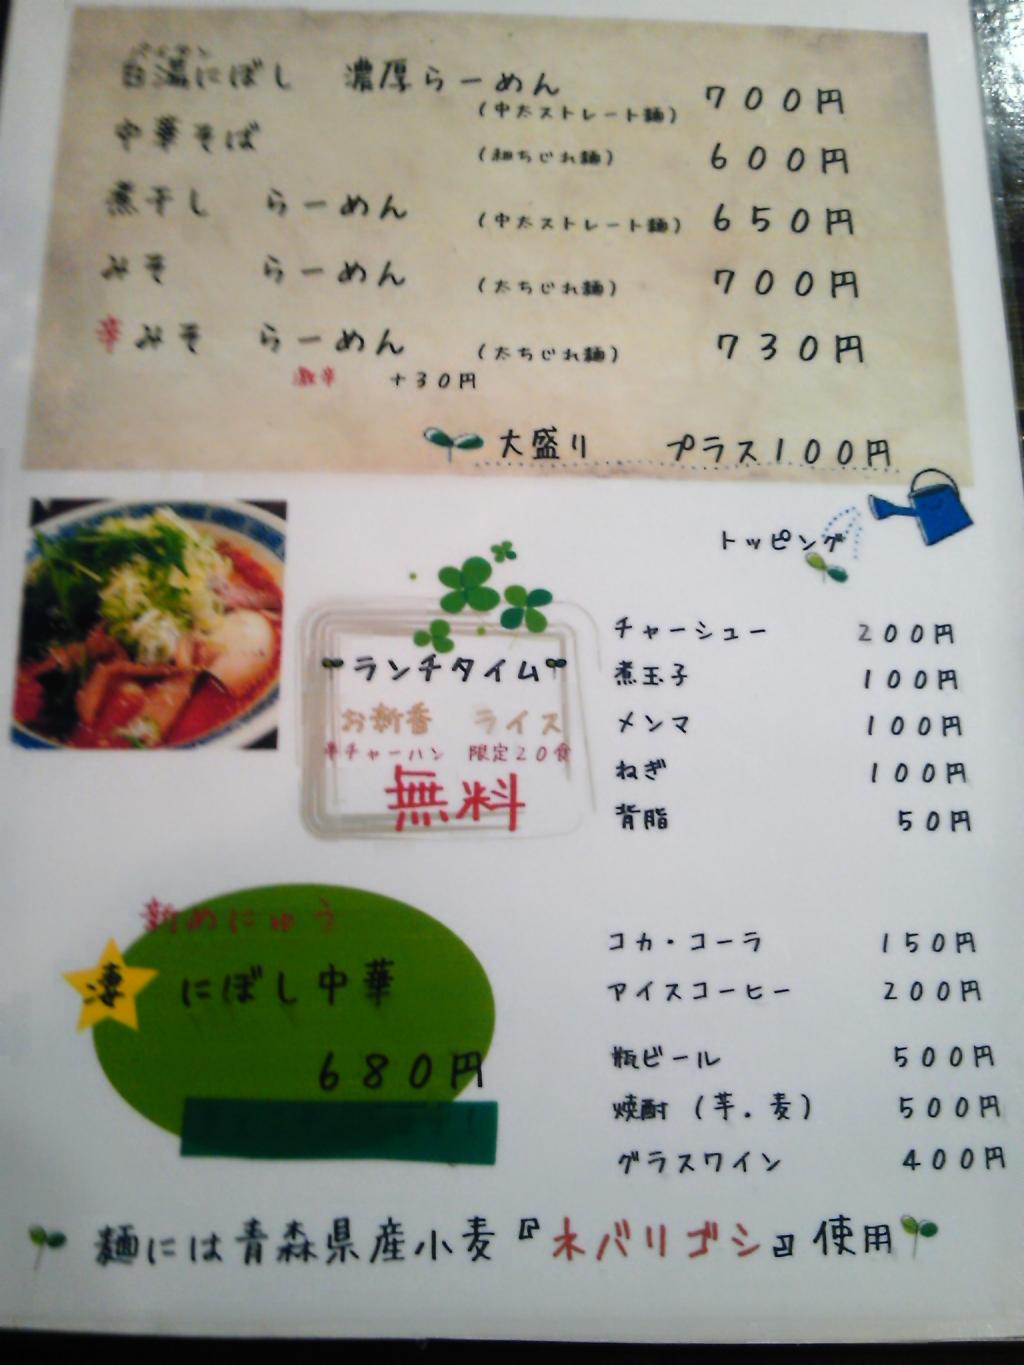 パイタン
白湯にぼし 濃厚らーめん (中太ストレート麺) 700円
中華そば (細ちぢれ麺) 600円
煮干し らーめん (中太ストレート麺) 650円
みそ らーめん (太ちぢれ麺) 700円
辛みそ らーめん (太ちぢれ麺) 730円
激辛 +30円
大盛り プラス100円
トッピング
チャーシュー 200円
煮玉子 100円
メンマ 100円
ねぎ 100円
背脂 50円
ランチタイム
お新香 ライス
半チャーハン 限定20食
無料
新めにゅう
凄 にぼし中華
680円
コカ・コーラ 150円
アイスコーヒー 200円
瓶ビール 500円
焼酎(芋.麦) 500円
グラスワイン 400円
麺には青森県産小麦『ネバリゴシ』使用